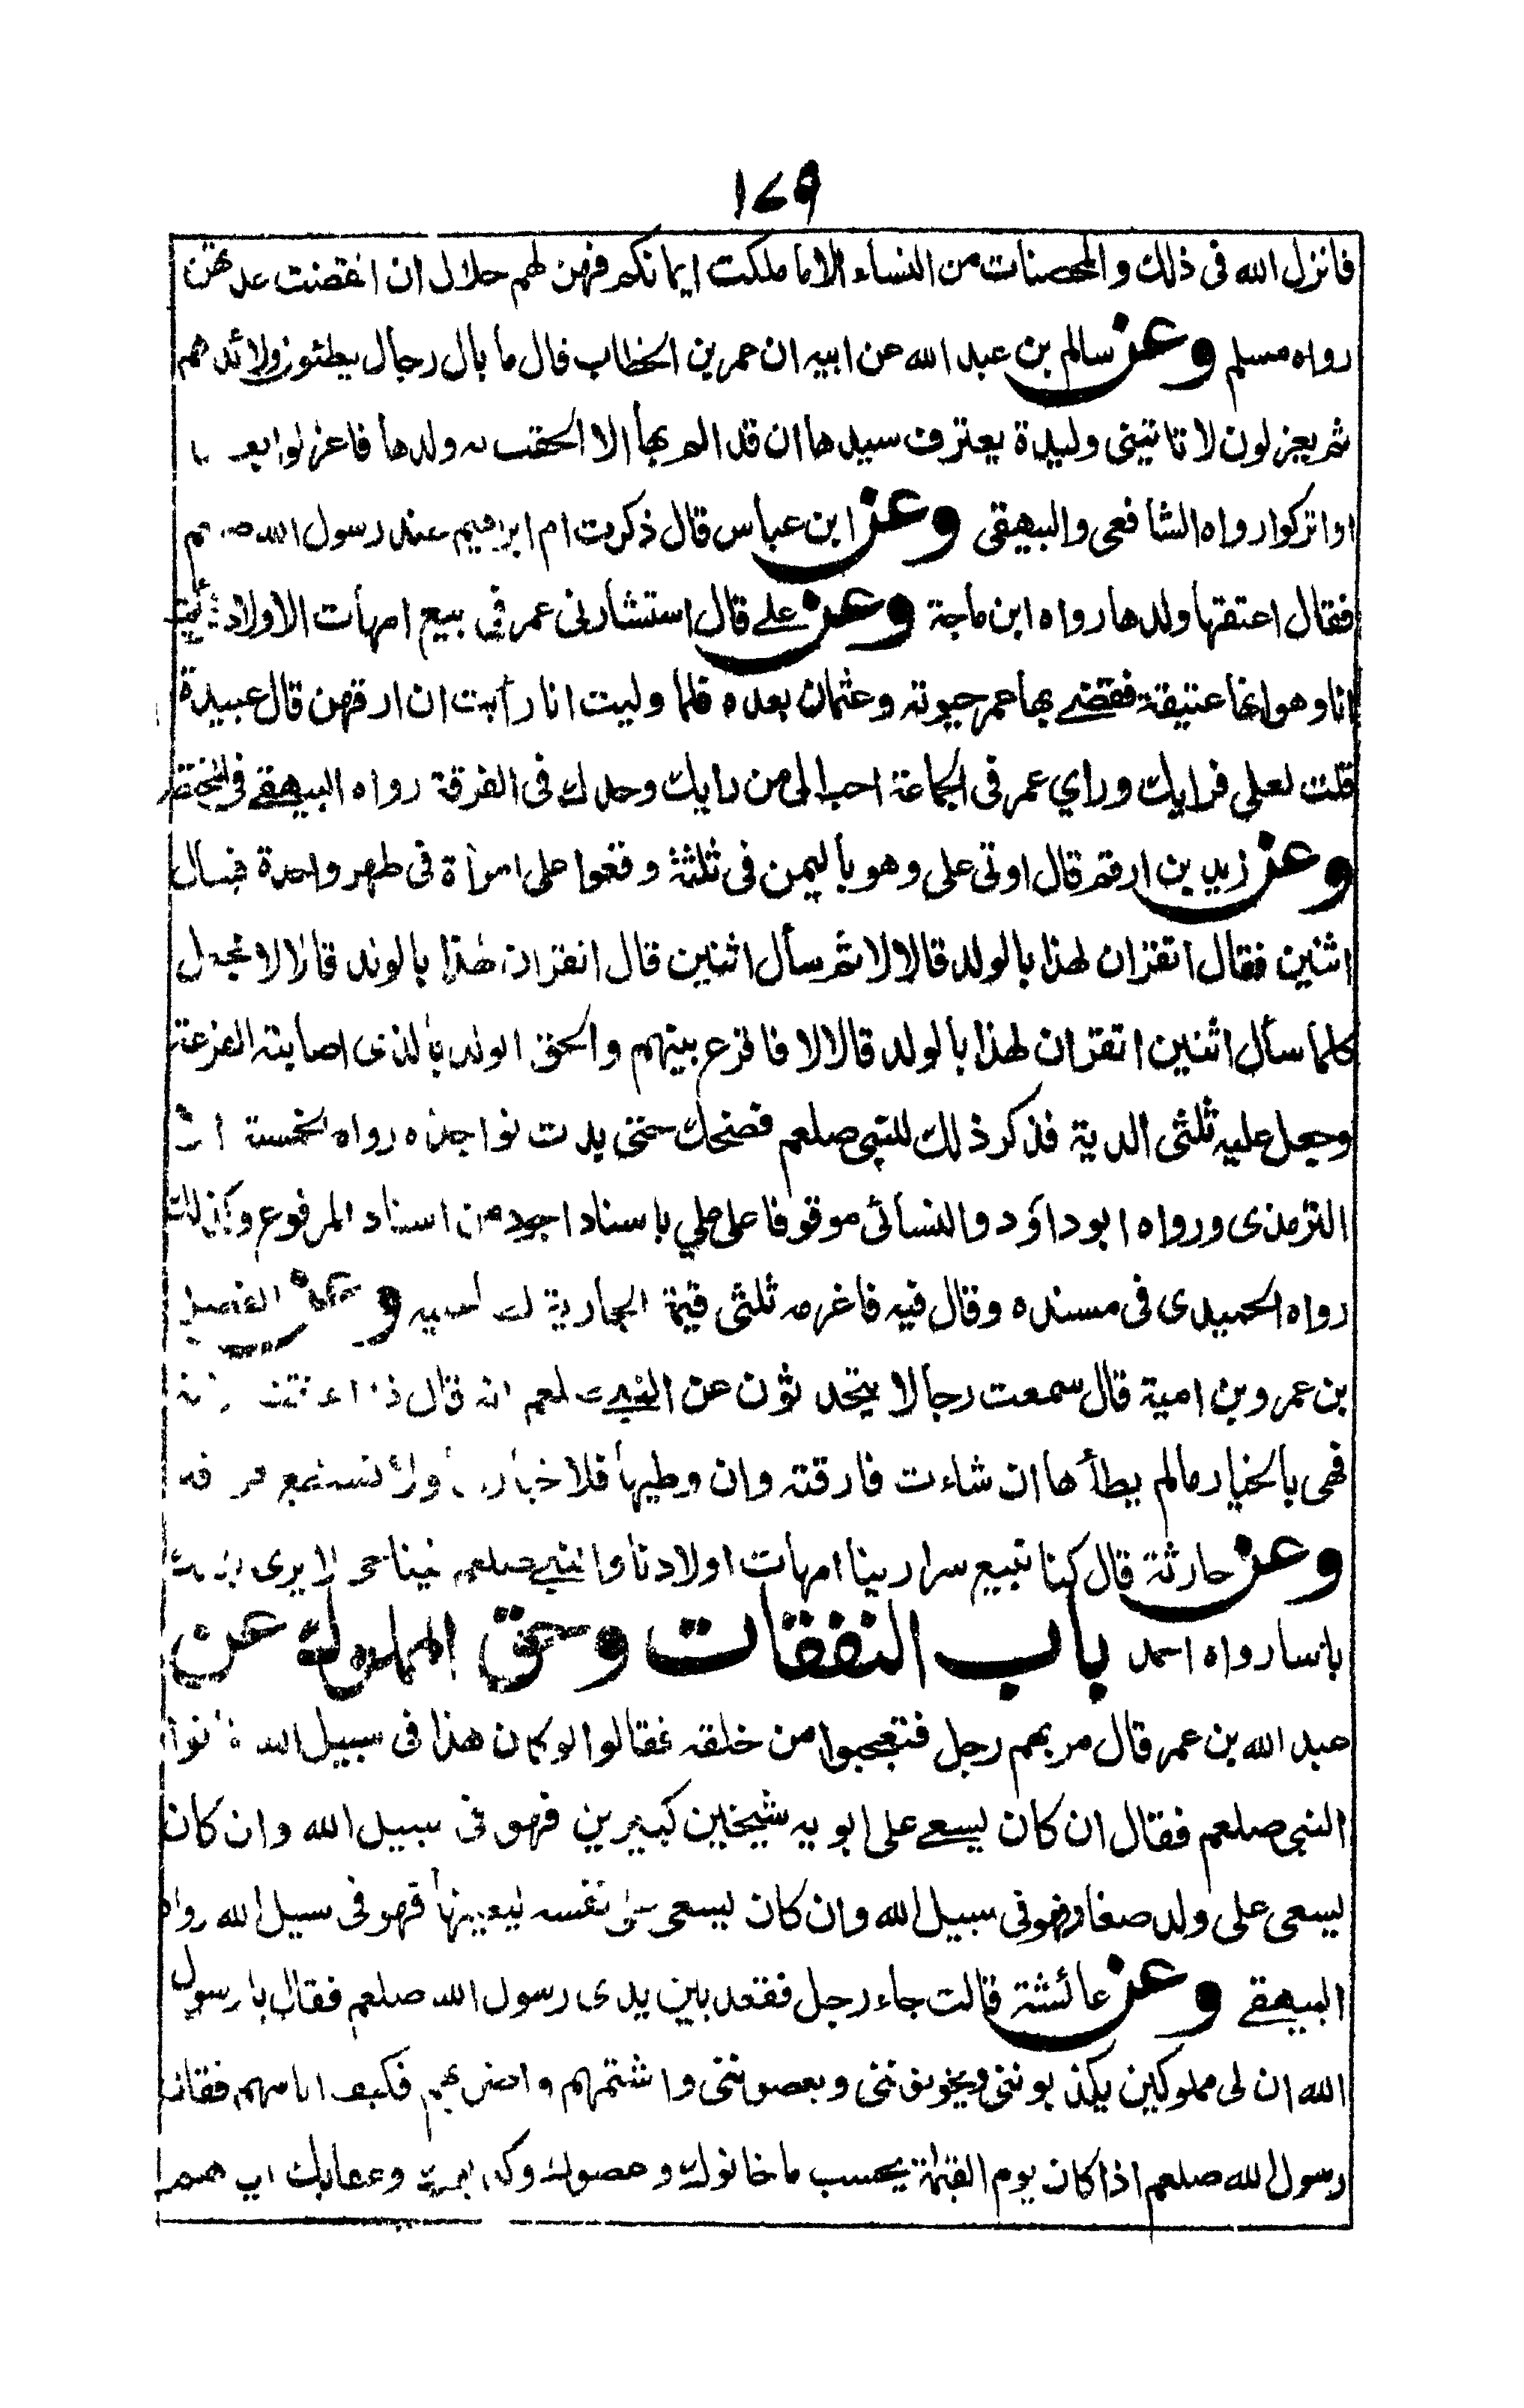 ١٧٩
فانزل الله فى ذلك والمحصنات من النساء الاما ملكت ايمانكم فهن لهم حلال ان انقضت عدتهن
رواه مسلم وعن سالم بن عبد الله عن ابيه ان عمر بن الخطاب قال ما بال رجال يطئون ولائدهم
ثم يعزلون لا تاتينى وليدة يعترف سيدها ان قد الم بها الا الحقت به ولدها فاعزلوا بعد
اواتركوا رواه الشافعى والبيهقى وعن ابن عباس قال ذكرت ام ابراهيم عند رسول الله
فقال اعتقها ولدها رواه ابن ماجة وعن علے قال استشارنى عمر فى بيع امهات الاولاد
انا وهو انها عتيقة فقضے بها عمر حيوته وعثمان بعده فلما وليت انا رأيت ان ارقهن قال عبيدة
قلت لعلى فرايك وراي عمر فى الجماعة احب الى من رايك وحدك فى الفرقة رواه البيهقے فى
وعن زيد بن ارقم قال اوتى على وهو باليمن فى ثلثة وقعوا على امرأة فى طهر واحدة فسال
اثنين فقال اتقران لهذا بالولد قالا لا ثم سأل اثنين قال اتقران لهذا بالولد قالا لا فجعل
كلما سأل اثنين اتقران لهذا بالولد قالا لا فاقرع بينهم والحق الولد بالذى اصابته القرعة
وجعل عليه ثلثى الدية فذكر ذلك للنبى صلعم فضحك حتى بدت نواجذه رواه الخمسة الا
الترمذى ورواه ابوداؤد والنسائى موقوفا على علي باسناد اجود من اسناد المرفوع وكذلك
رواه الحميدى فى مسنده وقال فيه فاغرمه ثلثى قيمة الجارية لصاحبيه وعن الفضيل
بن عمرو بن امية قال سمعت رجالا يتحدثون عن النبے صلعم انه قال اذا اعتقت
فهى بالخيار مالم يطأها ان شاءت فارقته وان وطيها فلا خيار لها ولا تستطيع فراقه
وعن حارثة قال كنا نبيع سرارينا امهات اولادنا والنبے صلعم فينا حى لا يرى بذلك
باسا رواه احمد باب النفقات وحق المملوك عن
عبد الله بن عمر قال مر بهم رجل فتعجبوا من خلقه فقالوا لو كان هذا فى سبيل الله فاتوا
النبى صلعم فقال ان كان يسعے على ابويه شيخين كبيرين فهو فى سبيل الله وان كان
يسعى على ولد صغار فهو فى سبيل الله وان كان يسعى على نفسه ليعينها فهو فى سبيل الله رواه
البيهقے وعن عائشة قالت جاء رجل فقعد بين يدى رسول الله صلعم فقال يا رسول
الله ان لى مملوكين يكذبوننى ويخونوننى ويعصوننى واشتمهم واضربهم فكيف انا منهم فقال
رسول الله صلعم اذا كان يوم القيمة يحسب ما خانوك وعصوك وكذبوك وعقابك اياهم